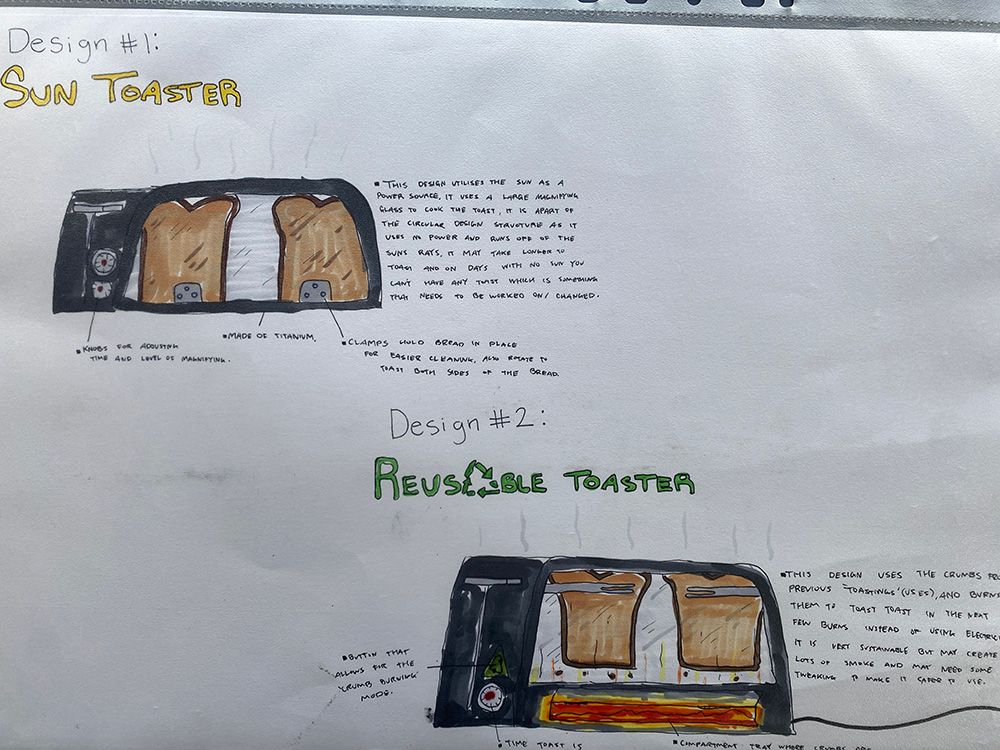 Design #1:
SUN TOASTER
THIS DESIGN UTILISES THE SUN AS A
POWER SOURCE, IT USES A LARGE MAGNIFYING
GLASS TO COOK THE TOAST, IT IS APART OF
THE CIRCULAR DESIGN STRUCTURE AS IT
USES NO POWER AND RUNS OFF OF THE
SUNS RAYS, IT MAY TAKE LONGER TO
TOAST AND ON DAYS WITH NO SUN YOU
CAN'T HAVE ANY TOAST WHICH IS SOMETHING
THAT NEEDS TO BE WORKED ON/ CHANGED.
KNOBS FOR ADJUSTING
TIME AND LEVEL OF MAGNIFYING.
MADE OF TITANIUM.
CLAMPS HOLD BREAD IN PLACE
FOR EASIER CLEANING, ALSO ROTATE TO
TOAST BOTH SIDES OF THE BREAD.
Design #2:
REUSABLE TOASTER
THIS DESIGN USES THE CRUMBS
PREVIOUS "TOASTINGS" (USES), AND BURNS
THEM TO TOAST TOAST IN THE NEXT
FEW BURNS INSTEAD OF USING
IT IS VERY SUSTAINABLE BUT MAY CREATE
LOTS OF SMOKE AND MAY NEED SOME
TWEAKING TO MAKE IT SAFER TO USE.
BUTTON THAT
ALLOWS FOR THE
'CRUMB BURNING'
MODE.
TIME TOAST IS
COMPARTMENT TRAY WHERE CRUMBS ARE